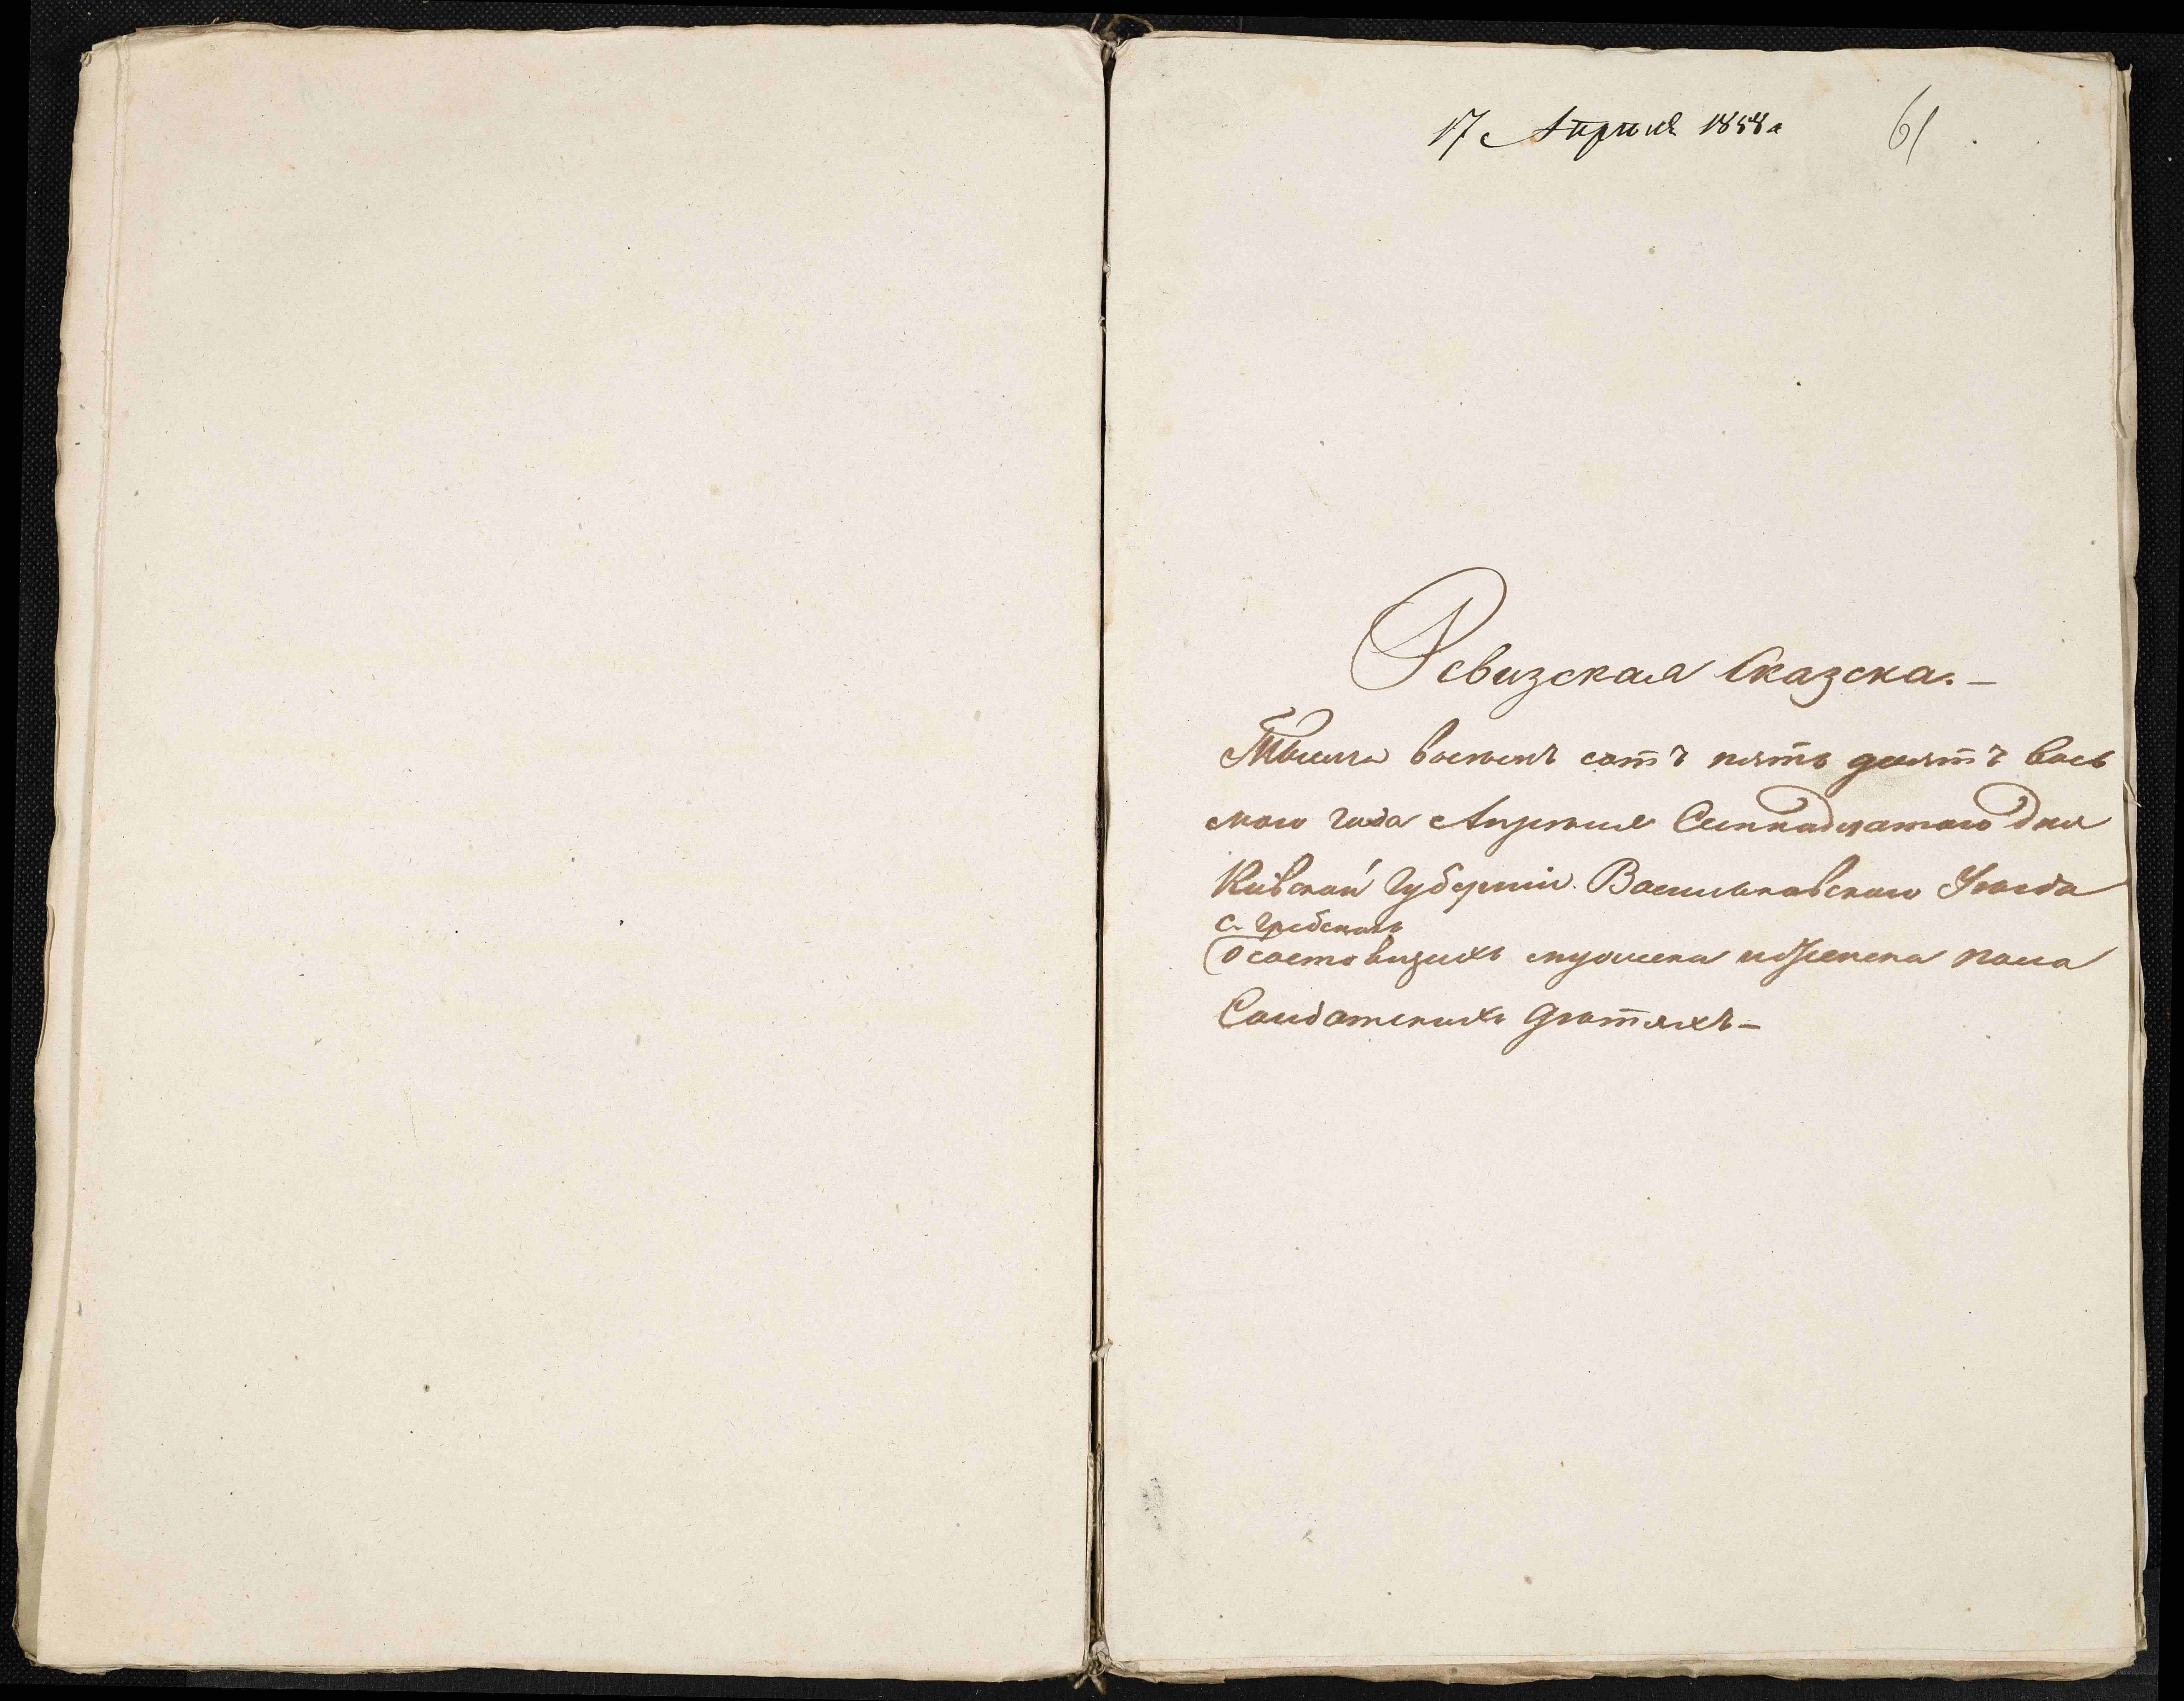 17 Апреля 1858 г
61
Ревизская Сказска.–
Тысяча восемь сотъ пять десятъ вось
мого года Апреля Семнадцатого дня
Кивской Губерніи. Васильковского Уезда
с. Гребенкахъ
О состовщихъ мужеска и Женска пола
Солдатскихъ Детяхъ–